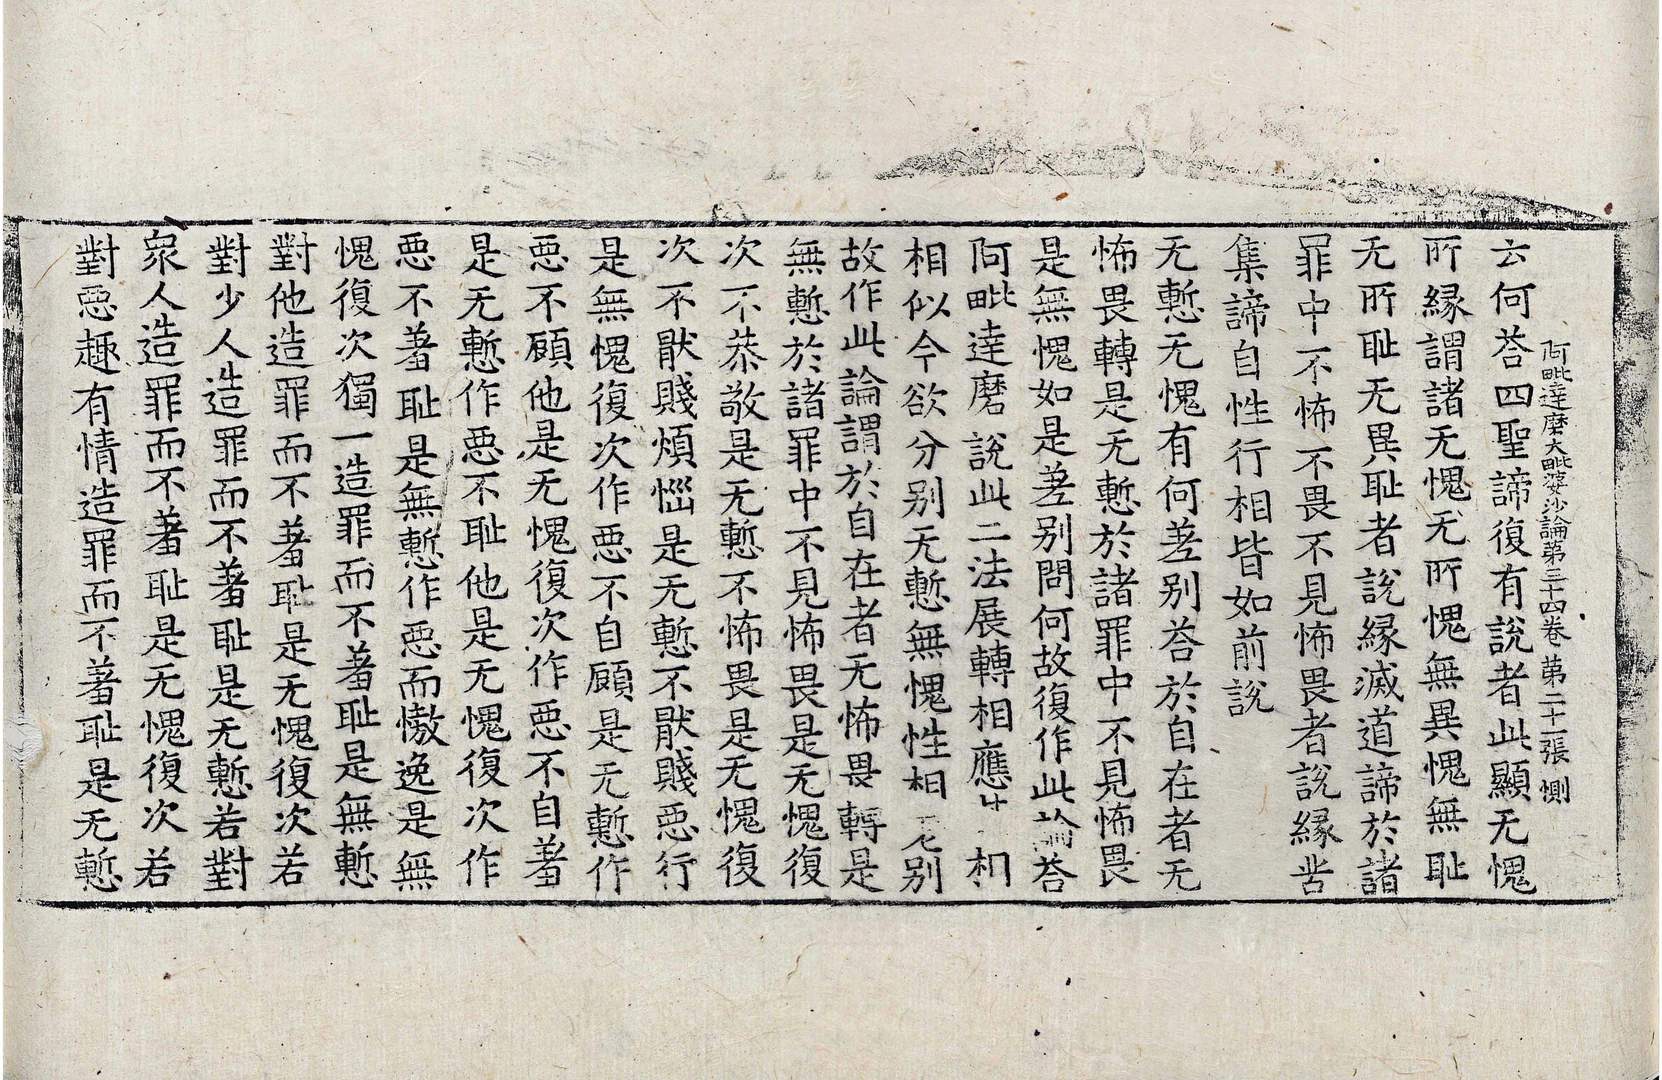 阿毗達磨大毗婆沙論第三十四卷 第二十一張 惻
云何荅四聖諦復有說者此顯无愧
所縁謂諸无愧无所愧無異愧無耻
无所耻无異耻者說縁滅道諦於諸
罪中不怖不畏不見怖畏者說縁苦
集諦自性行相皆如前說
无慙无愧有何差别荅於自在者无
怖畏轉是无慙於諸罪中不見怖畏
是無愧如是差别問何故復作此論荅
阿毗達磨說此二法展轉相應 相
相似今欲分别无慙無愧性相 别
故作此論謂於自在者无怖畏轉是
無慙於諸罪中不見怖畏是无愧復
次不恭敬是无慙不怖畏是无愧復
次不猒賤煩惱是无慙不猒賤惡行
是無愧復次作惡不自顧是无慙作
惡不顧他是无愧復次作惡不自著
是无慙作惡不耻他是无愧復次作
惡不著耻是無慙作惡而慠逸是無
愧復次獨一造罪而不著耻是無慙
對他造罪而不著耻是无愧復次若
對少人造罪而不著耻是无慙若對
衆人造罪而不著耻是无愧復次若
對惡趣有情造罪而不著耻是无慙